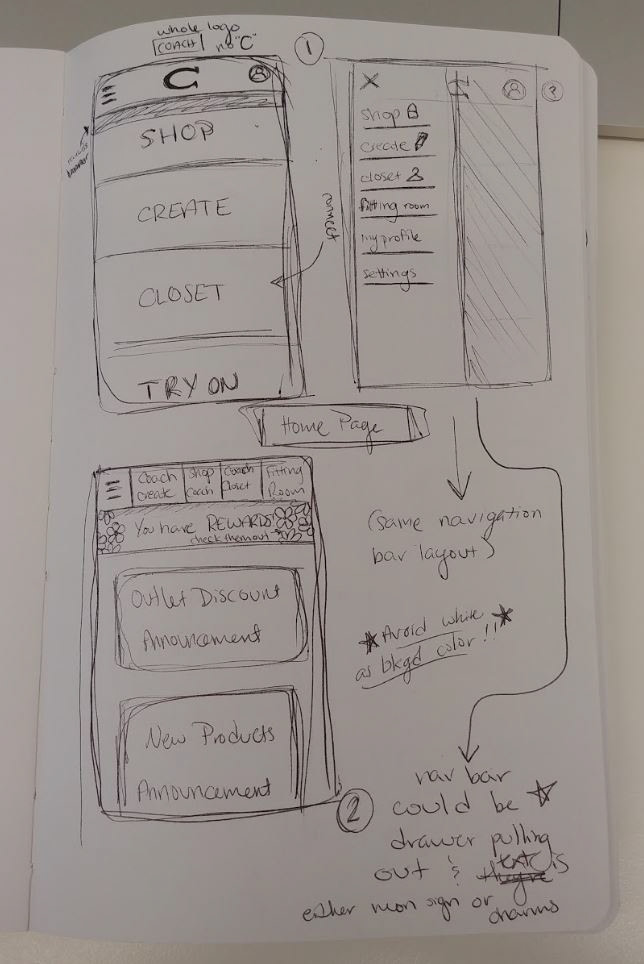 whole logo
COACH no "C"
1
C
SHOP
CREATE
CLOSET
TRY ON
connect
X
C
shop
create
closet
fitting room
my profile
settings
Home Page
Coach create
Shop Coach
Coach closet
Fitting Room
You have REWARDS!
check them out
Outlet Discount
Announcement
New Products
Announcement
2
(same navigation
bar layout)
Avoid white
as bkgd color!!
nav bar
could be
drawer pulling
out & text is
either mon sign or charms